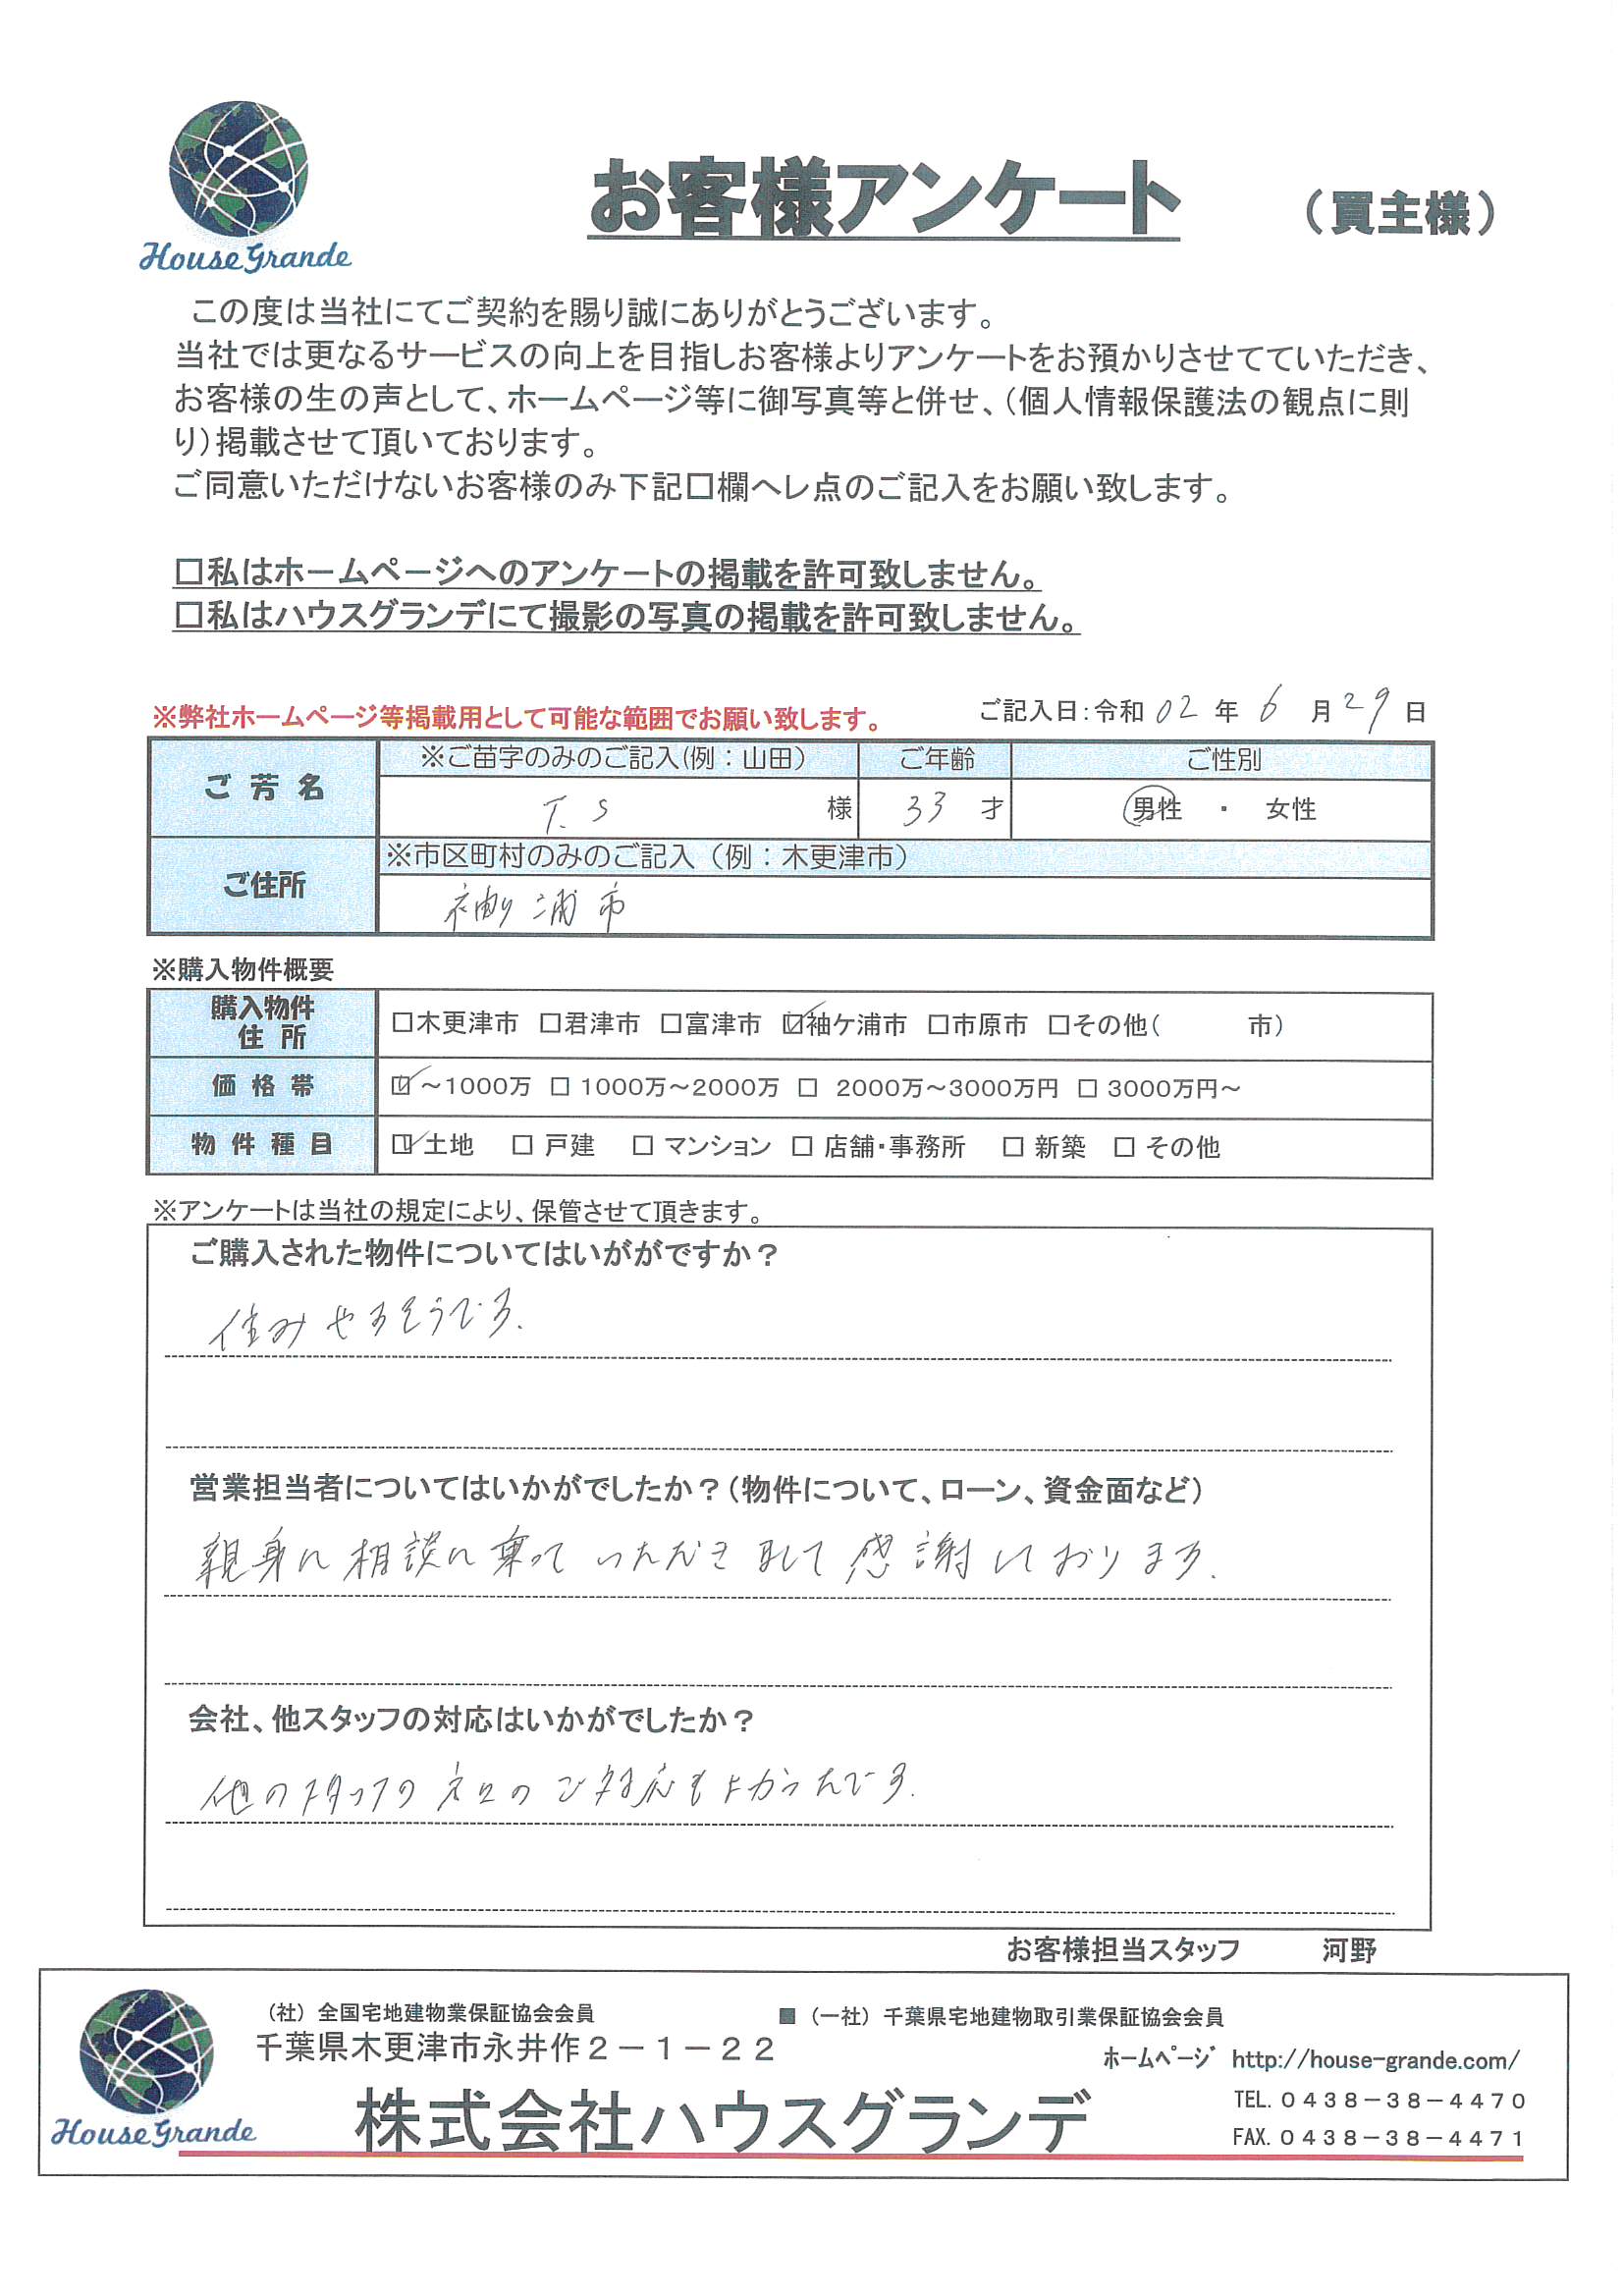 お客様アンケート （買主様）
House Grande
この度は当社にてご契約を賜り誠にありがとうございます。
当社では更なるサービスの向上を目指しお客様よりアンケートをお預かりさせてていただき、
お客様の生の声として、ホームページ等に御写真等と併せ、（個人情報保護法の観点に則
り）掲載させて頂いております。
ご同意いただけないお客様のみ下記口欄へレ点のご記入をお願い致します。
□私はホームページへのアンケートの掲載を許可致しません。
□私はハウスグランデにて撮影の写真の掲載を許可致しません。
ご記入日：令和 02 年 6 月 29 日
※弊社ホームページ等掲載用として可能な範囲でお願い致します。
ご芳名 ※ご苗字のみのご記入(例：山田） ご年齢 ご性別
T. S 様 33 才 男性 ・ 女性
ご住所 ※市区町村のみのご記入（例：木更津市）
袖ヶ浦市
※購入物件概要
購入物件住所 □木更津市 □君津市 □富津市 ☑袖ケ浦市 □市原市 □その他（ 市）
価格帯 ☑～1000万 □ 1000万～2000万 □ 2000万～3000万円 □ 3000万円～
物件種目 ☑土地 □ 戸建 □ マンション □ 店舗・事務所 □ 新築 □ その他
※アンケートは当社の規定により、保管させて頂きます。
ご購入された物件についてはいががですか？
住みやすそうです.
営業担当者についてはいかがでしたか？（物件について、ローン、資金面など）
親身に相談に乗っていただきまして感謝しております.
会社、他スタッフの対応はいかがでしたか？
他のスタッフの方々のご対応もよかったです.
お客様担当スタッフ 河野
（社）全国宅地建物業保証協会会員 ■（一社）千葉県宅地建物取引業保証協会会員
千葉県木更津市永井作２－１－２２
ホームページ http://house-grande.com/
株式会社ハウスグランデ
TEL. ０４３８－３８－４４７０
FAX. ０４３８－３８－４４７１
House Grande